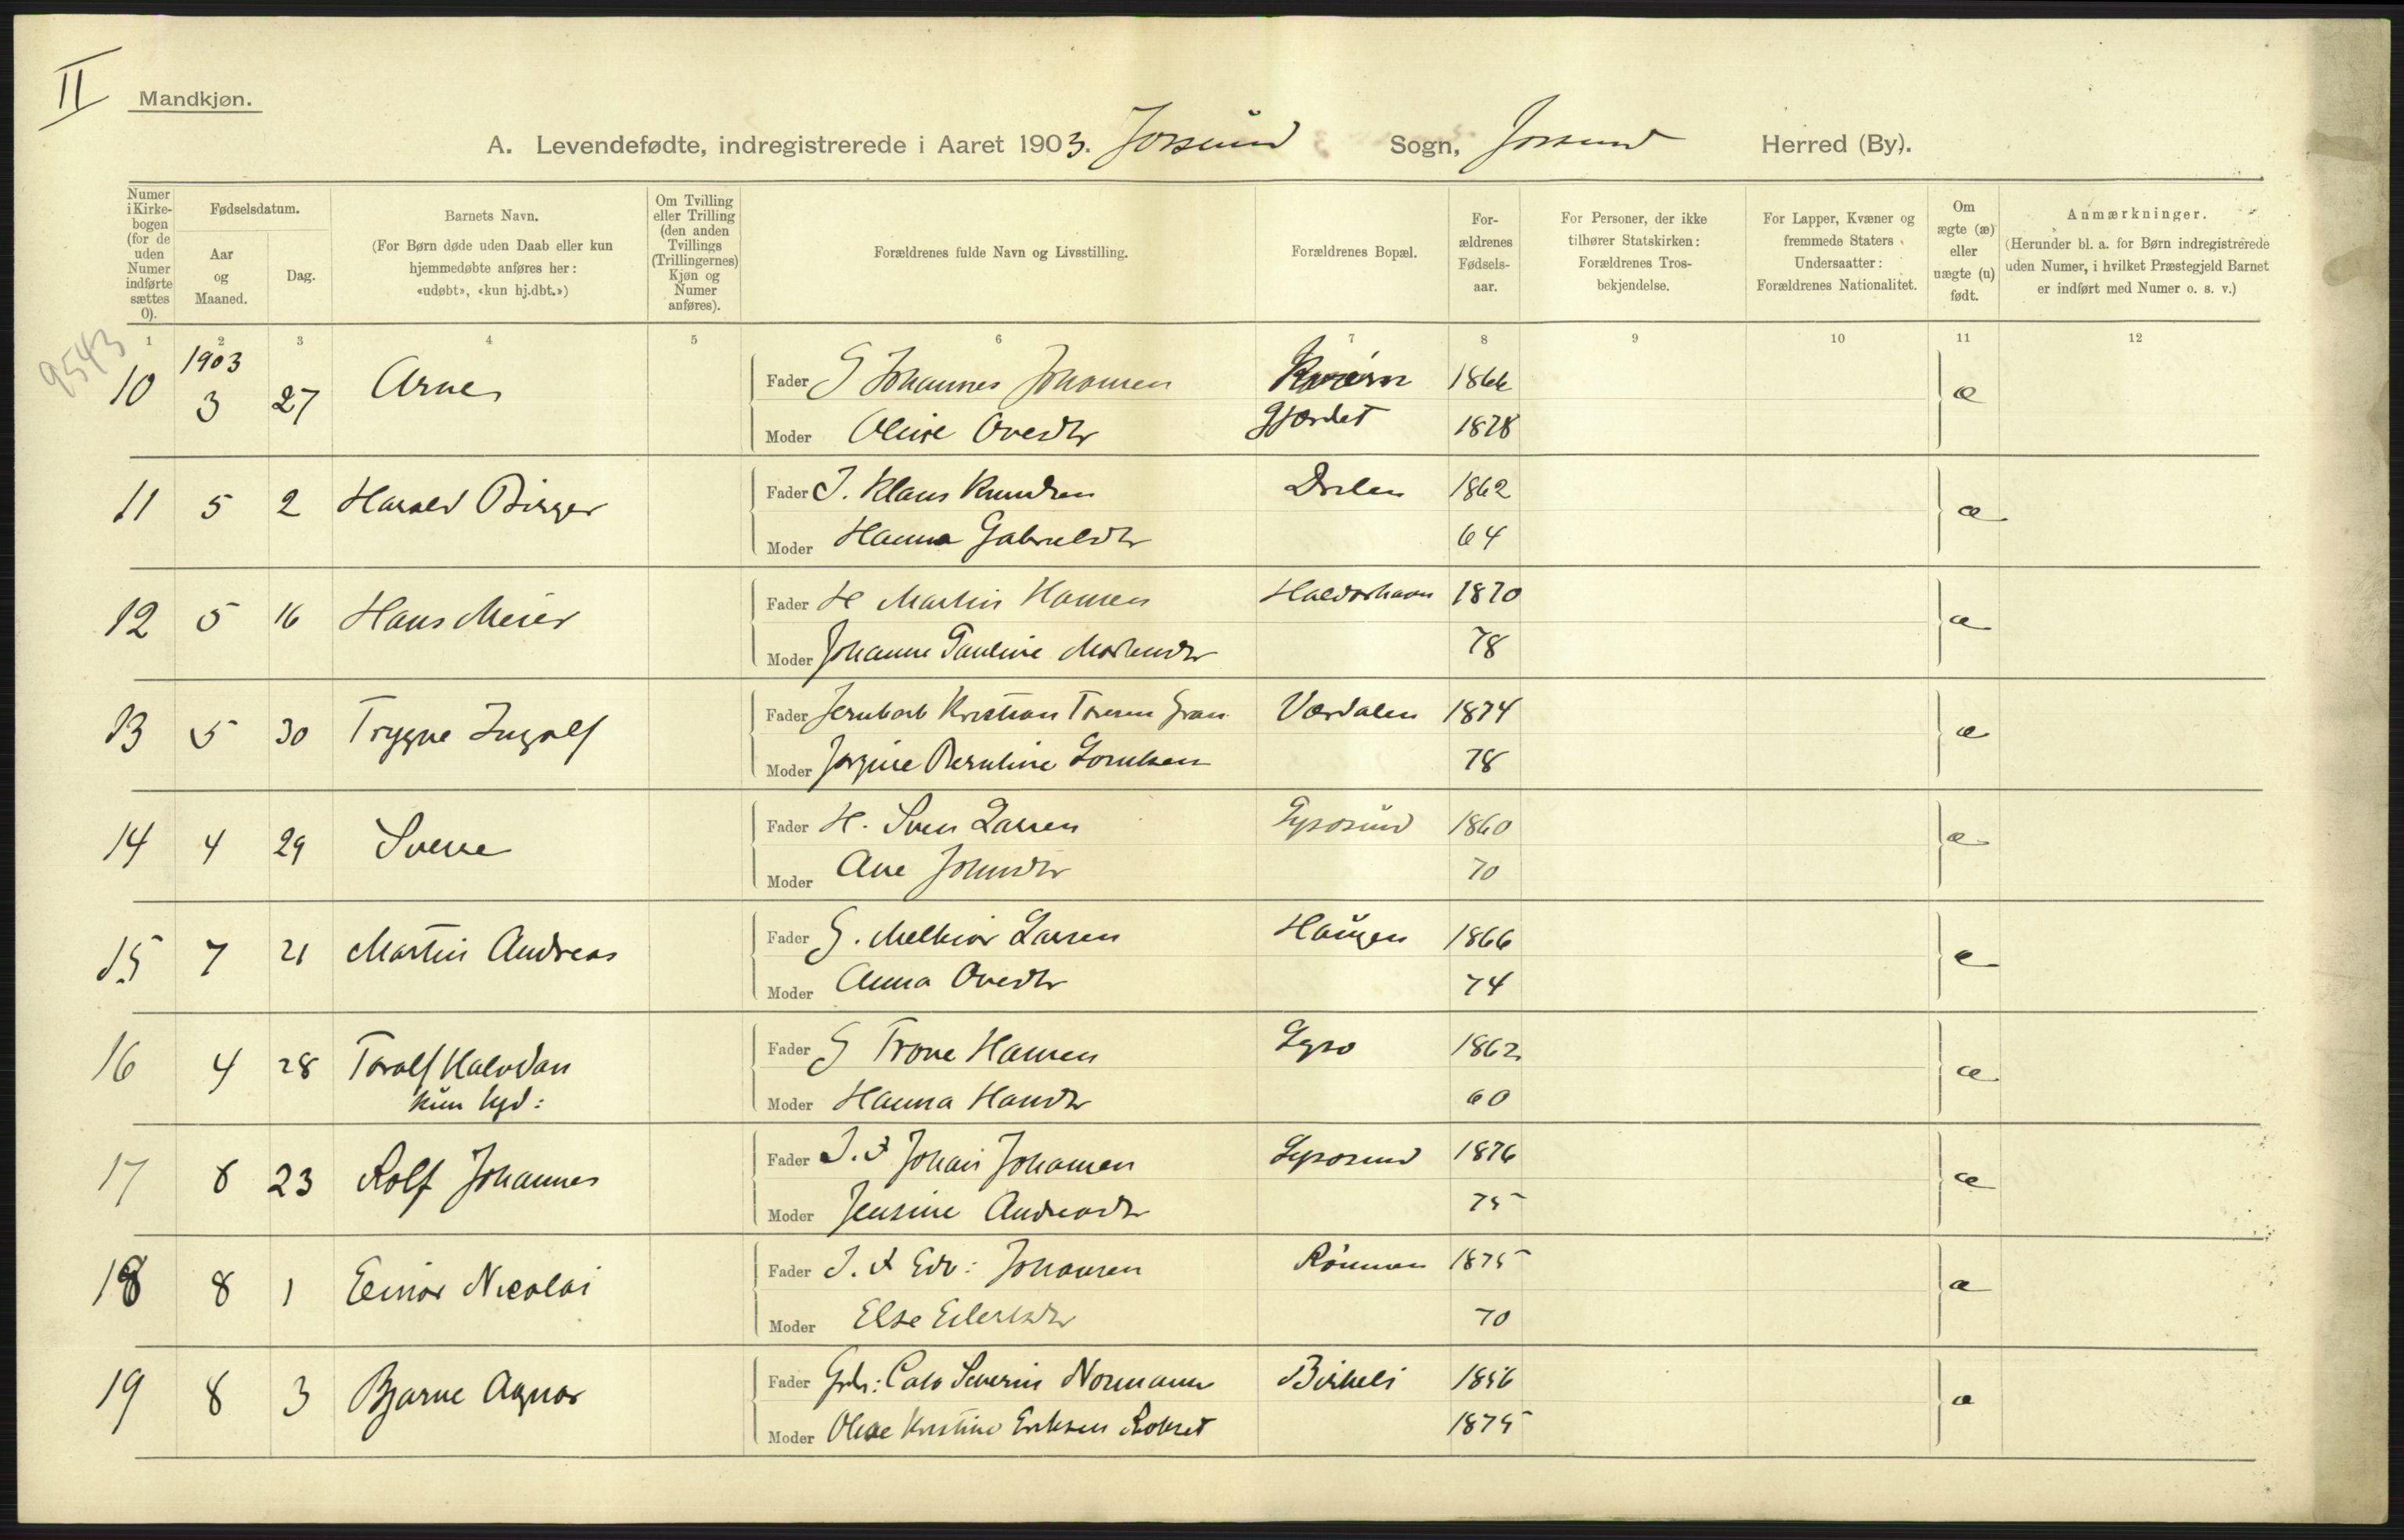 II
Mandkjøn.
A. Levendefødte, indregistrerede i Aaret 1903. Jossund Sogn, Jossund Herred (By).
Numer i Kirkebogen (for de uden Numer indførte sættes 0).
Fødselsdatum.
Aar og Maaned.
Dag.
Barnets Navn.
(For Børn døde uden Daab eller kun hjemmedøbte anføres her: «udøbt», «kun hj.dbt.»)
Om Tvilling eller Trilling (den anden Tvillings (Trillingernes) Kjøn og Numer anføres).
Forældrenes fulde Navn og Livsstilling.
Forældrenes Bopæl.
Forældrenes Fødselsaar.
For Personer, der ikke tilhører Statskirken: Forældrenes Trosbekjendelse.
For Lapper, Kvæner og fremmede Staters Undersaatter: Forældrenes Nationalitet.
Om ægte (æ) eller uægte (u) født.
Anmærkninger.
(Herunder bl. a. for Børn indregistrerede uden Numer, i hvilket Præstegjeld Barnet er indført med Numer o. s. v.)
1 2 3 4 5 6 7 8 9 10 11 12
9543
1903
10 3 27 Arne Fader G Johannes Johansen 1866 æ
Moder Oline Ovesdtr Gjærdet 1878
11 5 2 Harald Birger Fader J. Klaus Knudsen 1862 æ
Moder Hanna Gabrielsdtr 64
12 5 16 Hans Meier Fader H Martin Hansen Haldorhavn 1870 æ
Moder Johanne Pauline Mortensdtr 78
13 5 30 Trygve Ingolf Fader Jernbarb Kristian Toresen Gran Værdalen 1874 æ
Moder Jørgine Berntine Lorntsen 78
14 4 29 Sverre Fader H. Sven Larsen Lysøsund 1860 æ
Moder Ane Johnsdtr 70
15 7 21 Martin Andreas Fader G. Melkior Larsen Haugen 1866 æ
Moder Anna Ovesdtr 74
16 4 28 Toralf Halvdan Fader G Trone Hansen Lysø 1862 æ
kun hjd: Moder Hanna Hansdtr 60
17 8 23 Rolf Johannes Fader J. F Johan Johansen Lysøsund 1876 æ
Moder Jensine Andreasdtr 75
18 8 1 Einar Nicolai Fader J. F Edv: Johansen 1875 æ
Moder Else Eilertsdtr 70
19 8 3 Bjarne Agnar Fader Grdr: Carl Severin Normann Birkeli 1856 æ
Moder Olise Kristine Eriksen Rokset 1875